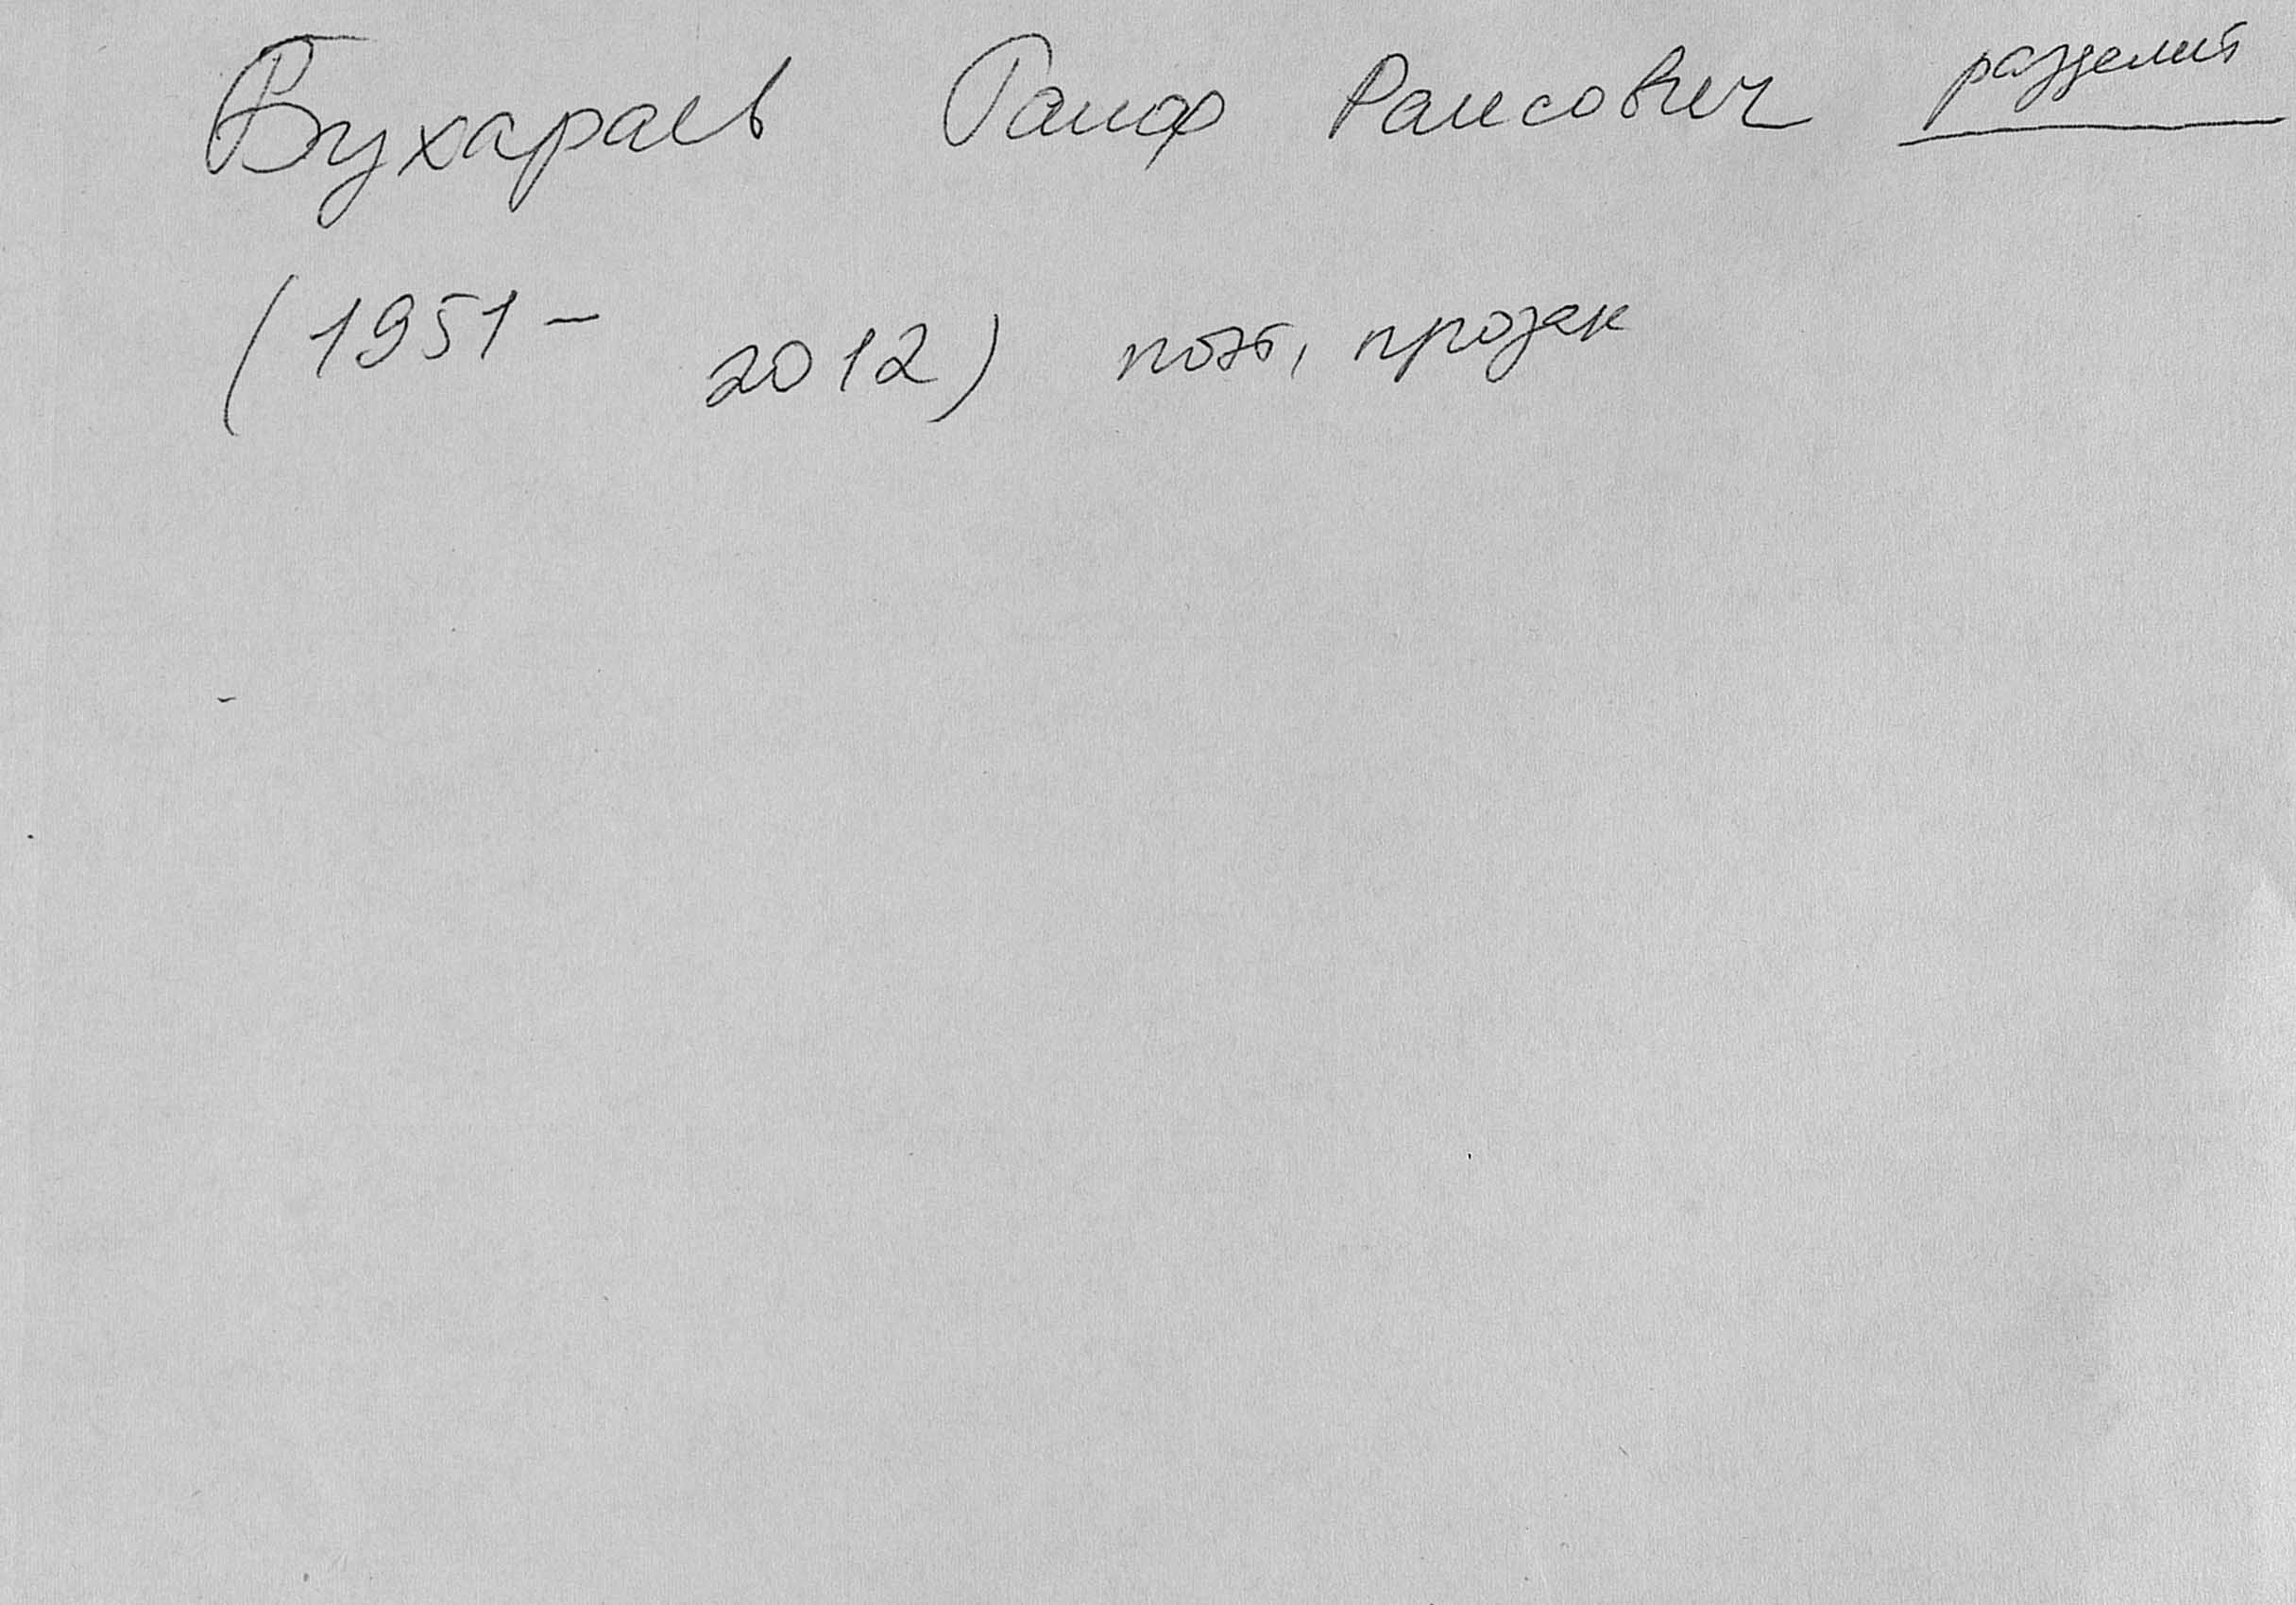 Бухараев Раиф Раисович разделит
(1951 – 2012) поэт, прозаик